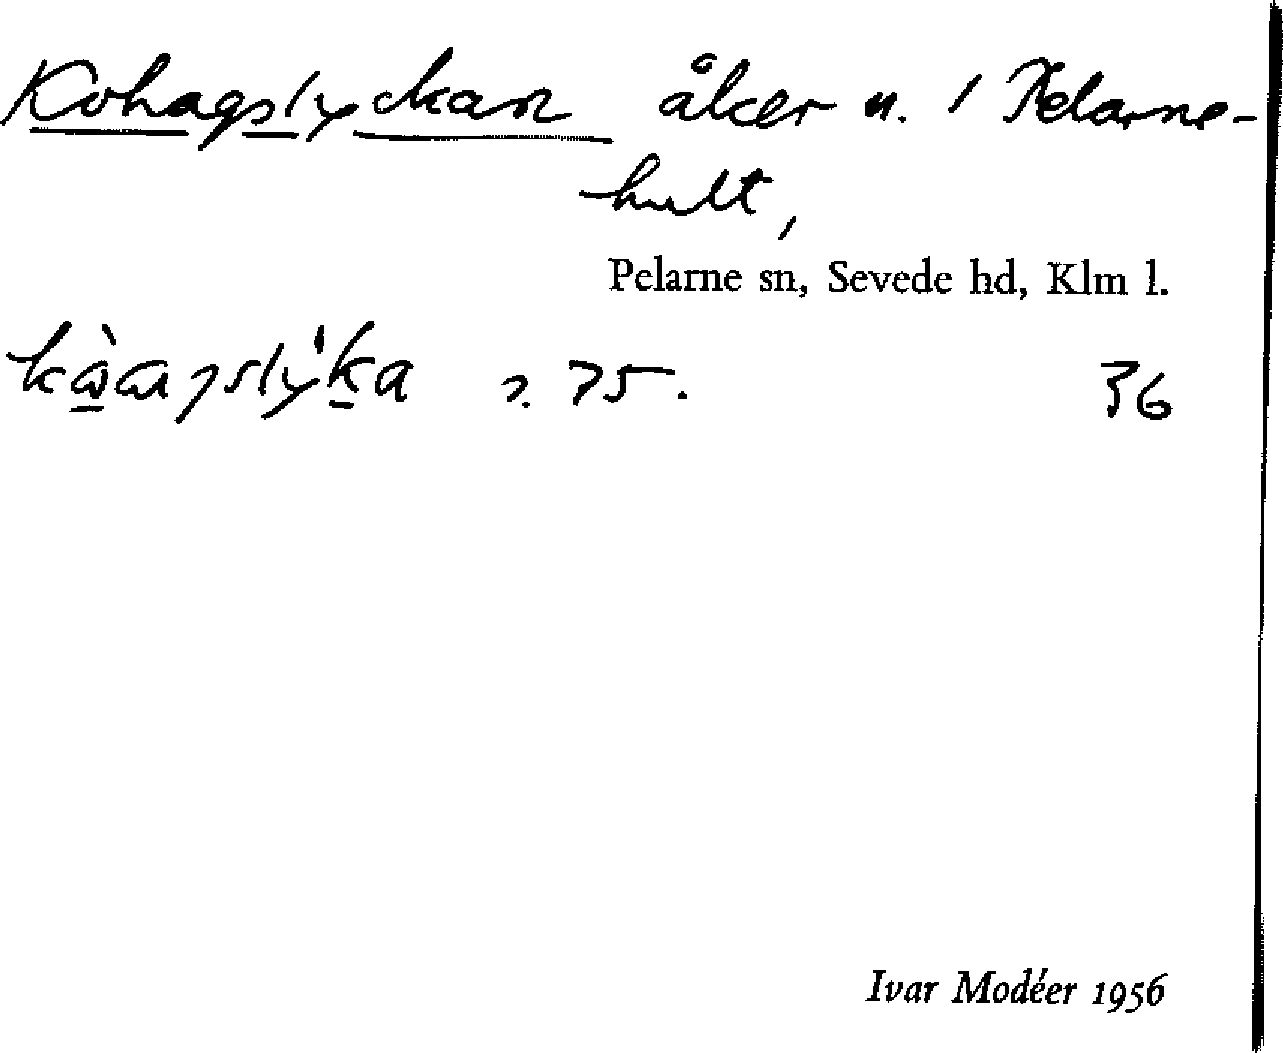 Kohagslyckan åker n. 1 Pelarne-
hult,
Pelarne sn, Sevede hd, Klm l.
75. 36
Ivar Modéer 1956